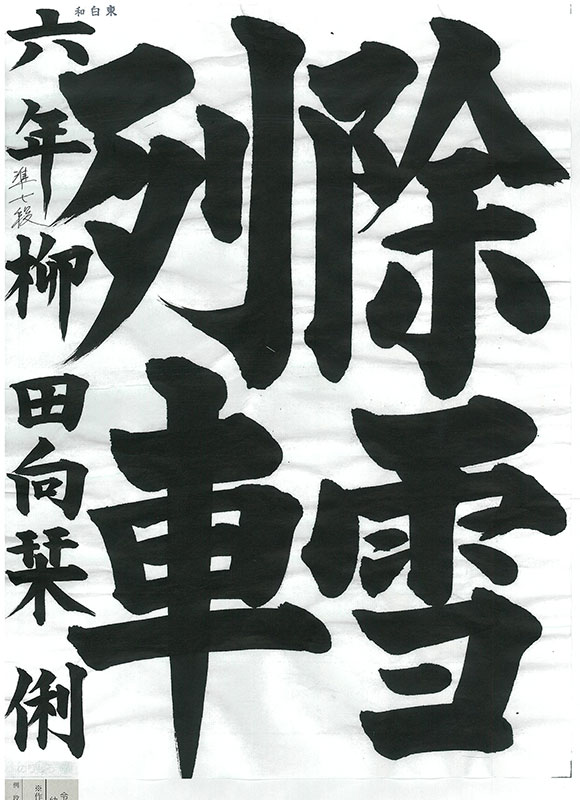 東白和
除雪
列車
六年柳田向栞俐
準七段